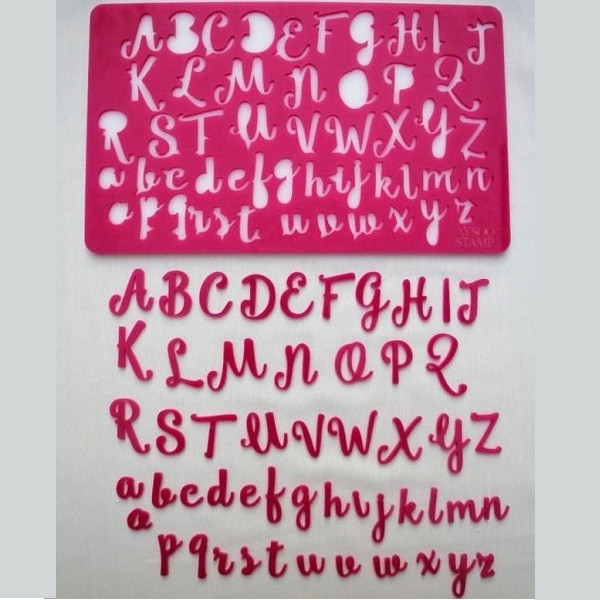 A B C D E F G H I J
K L M N O P Q
R S T U V W X Y Z
a b c d e f g h i j k l m n
o p q r s t u v w x y z
AYSOO
STAMP
A B C D E F G H I J
K L M N O P Q
R S T U V W X Y Z
a b c d e f g h i j k l m n
o
p q r s t u v w x y z